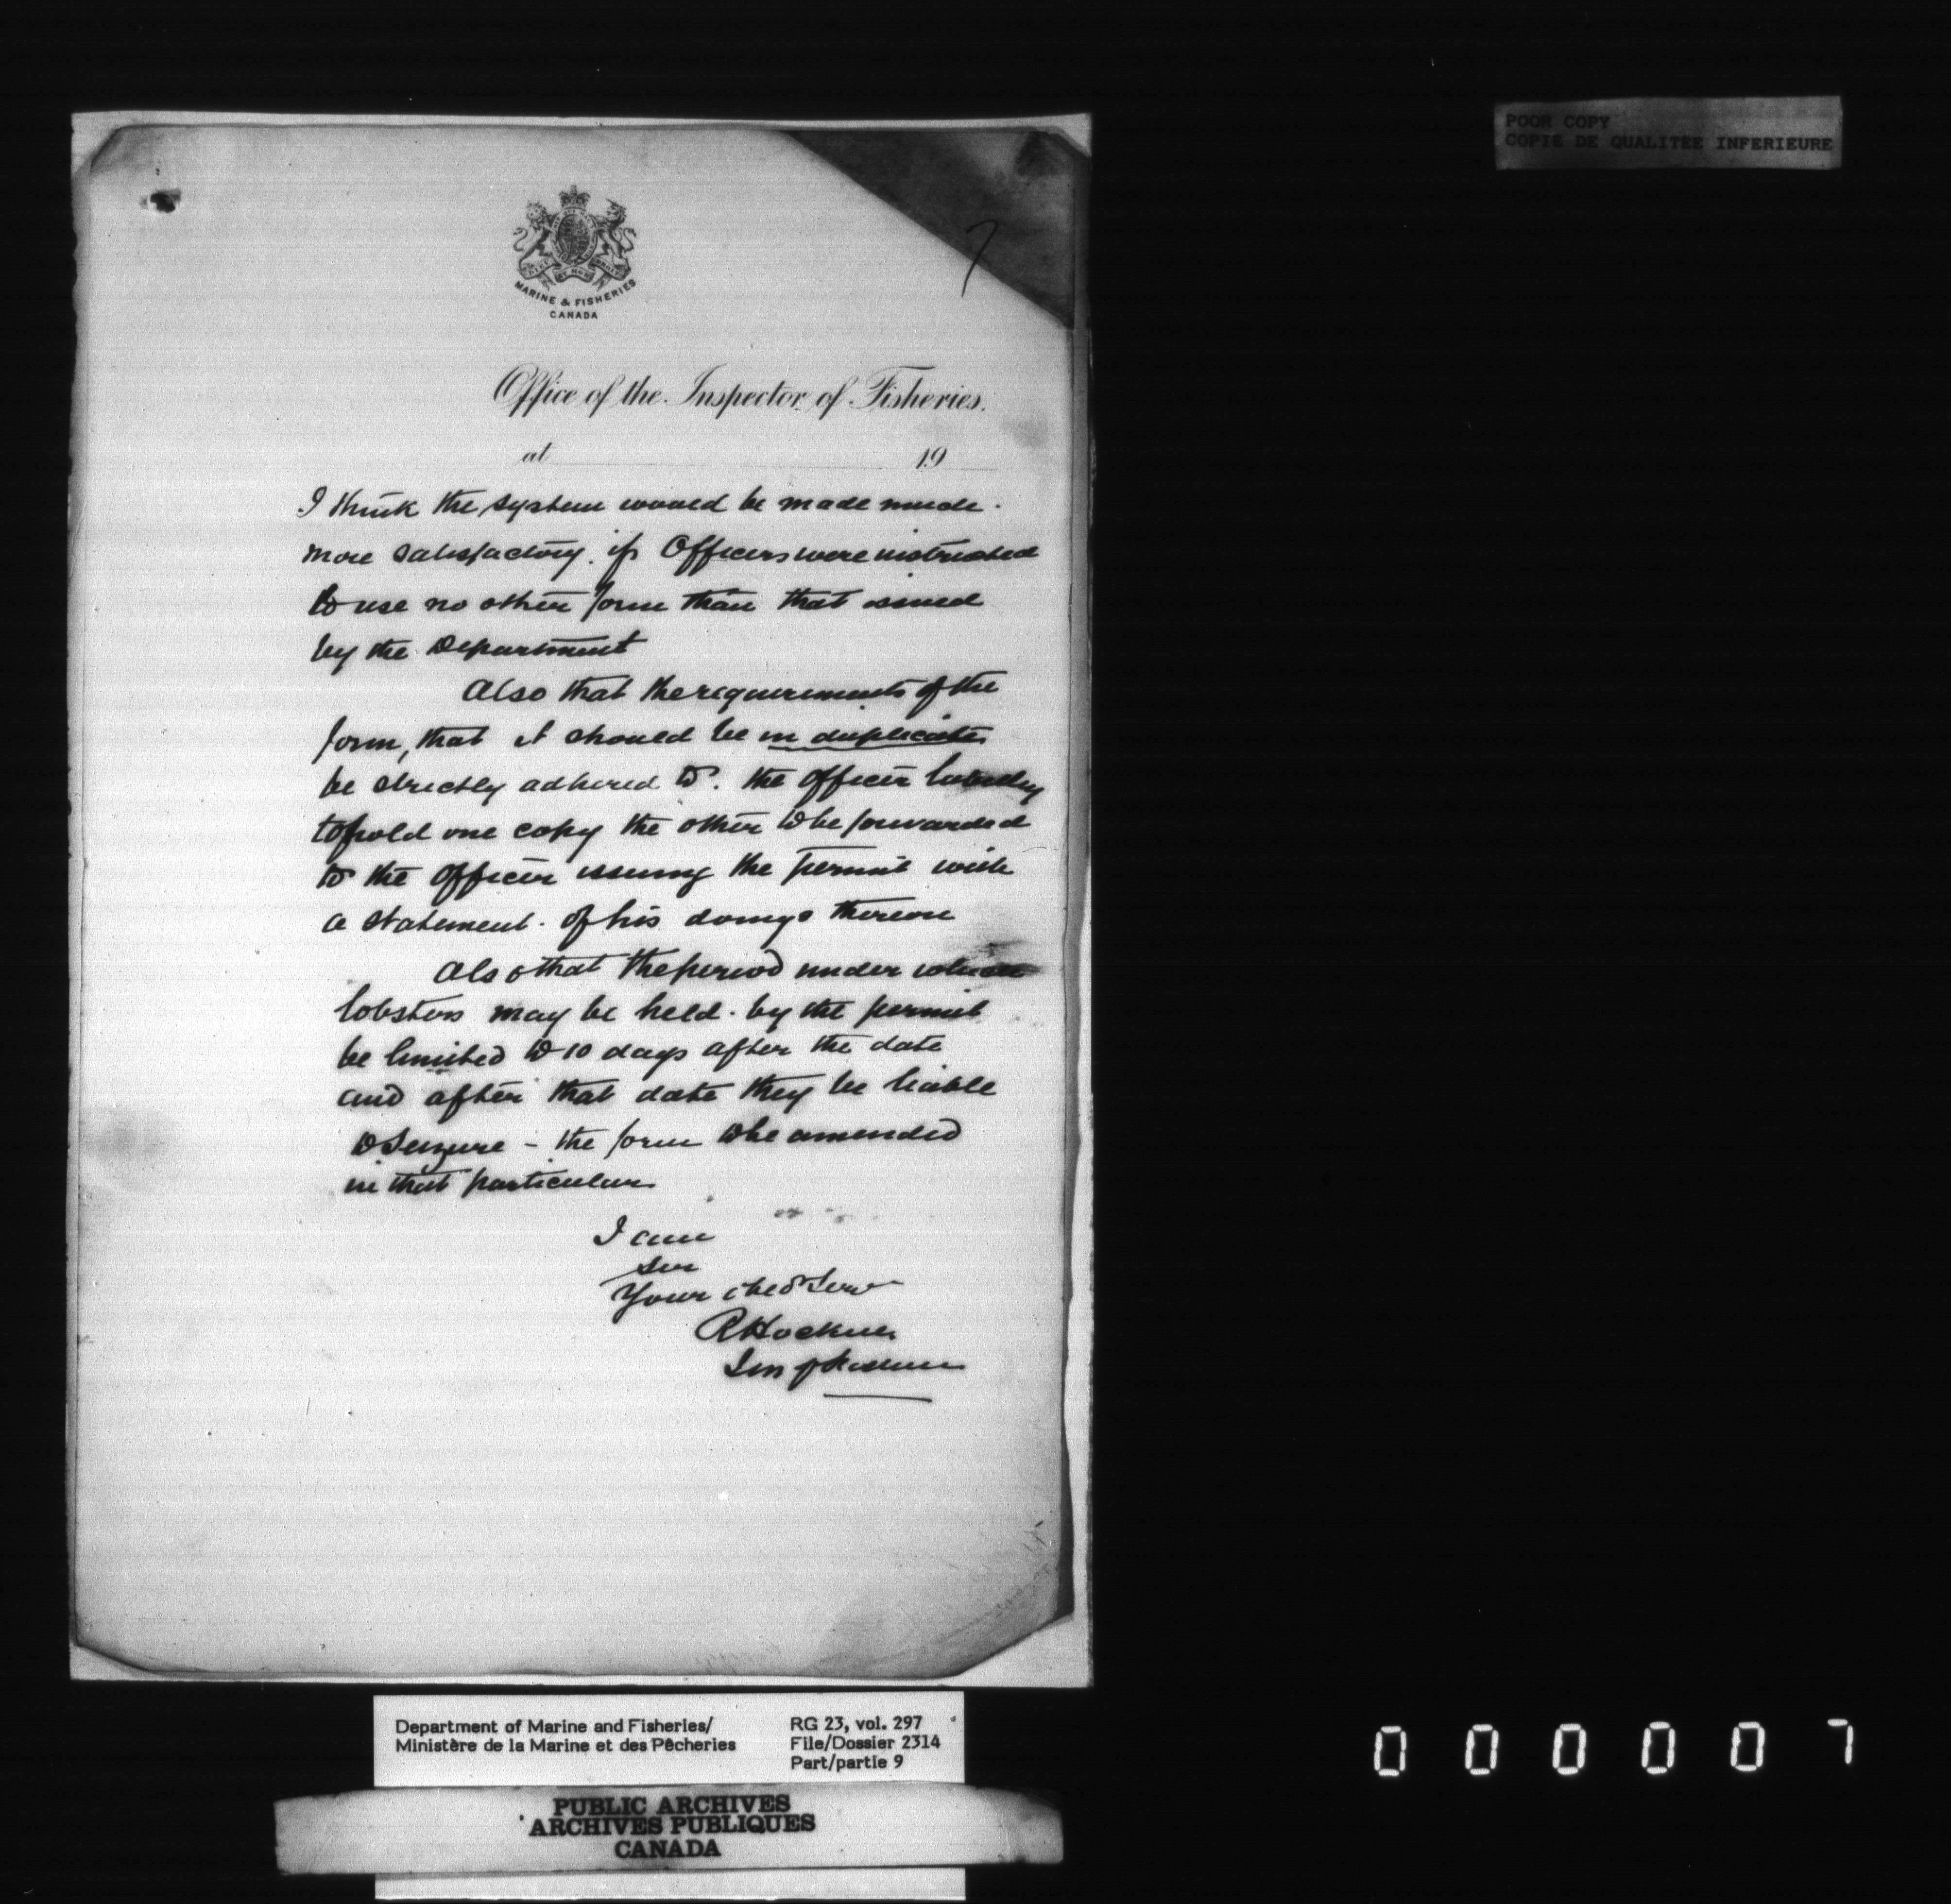 POOR COPY
COPIE DE QUALITEE INFERIEURE
7
DIEU ET MON DROIT
MARINE & FISHERIES
CANADA
Office of the Inspector of Fisheries.
at 19
I think the system would be made much
more satisfactory. if Officers were instructed
to use no other form than that issued
by the Department
Also that the requirements of the
form, that it should be in duplicate
be strictly adhered to. the officer
to hold one copy the other to be forwarded
to the Officer issuing the permit with
a statement. of his doings thereon
Also that the period under which
lobsters may be held. by the permit
be limited to 10 days after the date
and after that date they be liable
to Seizure - the form to be amended
in that particular
I am
Sir
Your obed Serv
R Hockin
Ins of Fisheries
Department of Marine and Fisheries/
Ministère de la Marine et des Pêcheries
RG 23, vol. 297
File/Dossier 2314
Part/partie 9
PUBLIC ARCHIVES
ARCHIVES PUBLIQUES
CANADA
000007